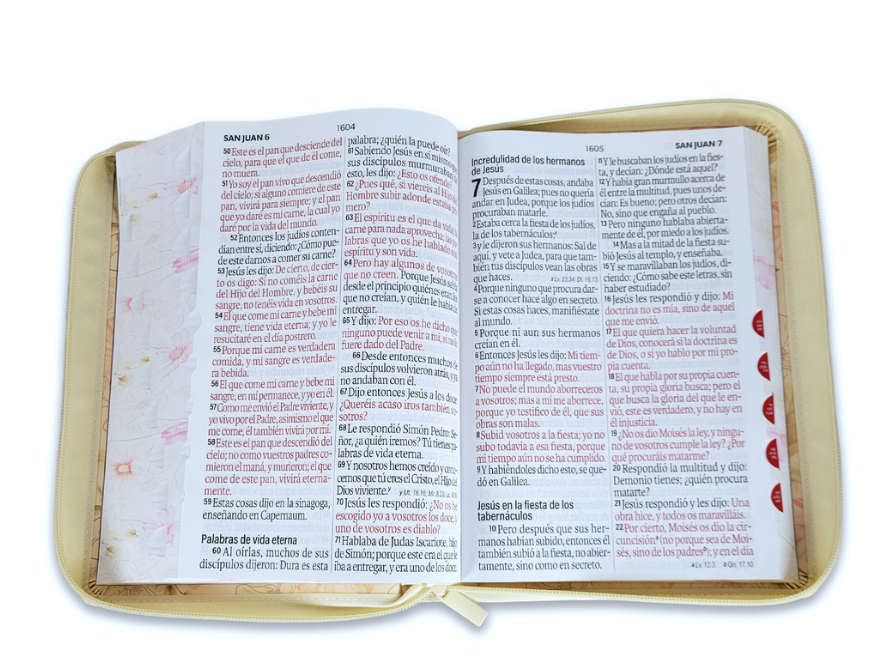 SAN JUAN 6
1604
50 Este es el pan que desciende del
cielo, para que el que de él come,
no muera.
51 Yo soy el pan vivo que descendió
del cielo; si alguno comiere de este
pan, vivirá para siempre; y el pan
que yo daré es mi carne, la cual yo
daré por la vida del mundo.
52 Entonces los judíos conten-
dían entre sí, diciendo: ¿Cómo pue-
de este darnos a comer su carne?
53 Jesús les dijo: De cierto, de cier-
to os digo: Si no coméis la carne
del Hijo del Hombre, y bebéis su
sangre, no tenéis vida en vosotros.
54 El que come mi carne y bebe mi
sangre, tiene vida eterna; y yo le
resucitaré en el día postrero.
55 Porque mi carne es verdadera
comida, y mi sangre es verdade-
ra bebida.
56 El que come mi carne y bebe mi
sangre, en mí permanece, y yo en él.
57 Como me envió el Padre viviente, y
yo vivo por el Padre, asimismo el que
me come, él también vivirá por mí.
58 Este es el pan que descendió del
cielo; no como vuestros padres co-
mieron el maná, y murieron; el que
come de este pan, vivirá eterna-
mente.
59 Estas cosas dijo en la sinagoga,
enseñando en Capernaum.
Palabras de vida eterna
60 Al oírlas, muchos de sus
discípulos dijeron: Dura es esta
palabra; ¿quién la puede oír?
61 Sabiendo Jesús en sí mismo
sus discípulos murmuraban
esto, les dijo: ¿Esto os ofende?
62 ¿Pues qué, si viereis al Hijo
Hombre subir adonde estaba
mero?
63 El espíritu es el que da vida;
carne para nada aprovecha; las
labras que yo os he hablado
espíritu y son vida.
64 Pero hay algunos de vosotros
que no creen. Porque Jesús
desde el principio quiénes eran
que no creían, y quién le había
entregar.
65 Y dijo: Por eso os he dicho que
ninguno puede venir a mí, si no le
fuere dado del Padre.
66 Desde entonces muchos de
sus discípulos volvieron atrás, y ya
no andaban con él.
67 Dijo entonces Jesús a los doce:
¿Queréis acaso iros también vo-
sotros?
68 Le respondió Simón Pedro: Se-
ñor, ¿a quién iremos? Tú tienes pa-
labras de vida eterna.
69 Y nosotros hemos creído y cono-
cemos que tú eres el Cristo, el Hijo del
Dios viviente.y y Mt. 16.16; Mr. 8.29; Lc. 9.
70 Jesús les respondió: ¿No os he
escogido yo a vosotros los doce, y
uno de vosotros es diablo?
71 Hablaba de Judas Iscariote, hijo
de Simón; porque este era el que le
iba a entregar, y era uno de los doce.
1605
SAN JUAN 7
Incredulidad de los hermanos
de Jesús
7 Después de estas cosas, andaba
Jesús en Galilea; pues no quería
andar en Judea, porque los judíos
procuraban matarle.
2 Estaba cerca la fiesta de los judíos,
la de los tabernáculos;a
3 y le dijeron sus hermanos: Sal de
aquí, y vete a Judea, para que tam-
bién tus discípulos vean las obras
que haces. a Lv. 23.34; Dt. 16.13.
4 Porque ninguno que procura dar-
se a conocer hace algo en secreto.
Si estas cosas haces, manifiéstate
al mundo.
5 Porque ni aun sus hermanos
creían en él.
6 Entonces Jesús les dijo: Mi tiem-
po aún no ha llegado, mas vuestro
tiempo siempre está presto.
7 No puede el mundo aborreceros
a vosotros; mas a mí me aborrece,
porque yo testifico de él, que sus
obras son malas.
8 Subid vosotros a la fiesta; yo no
subo todavía a esa fiesta, porque
mi tiempo aún no se ha cumplido.
9 Y habiéndoles dicho esto, se que-
dó en Galilea.
Jesús en la fiesta de los
tabernáculos
10 Pero después que sus her-
manos habían subido, entonces él
también subió a la fiesta, no abier-
tamente, sino como en secreto.
11 Y le buscaban los judíos en la fies-
ta, y decían: ¿Dónde está aquel?
12 Y había gran murmullo acerca de
él entre la multitud, pues unos de-
cían: Es bueno; pero otros decían:
No, sino que engaña al pueblo.
13 Pero ninguno hablaba abierta-
mente de él, por miedo a los judíos.
14 Mas a la mitad de la fiesta su-
bió Jesús al templo, y enseñaba.
15 Y se maravillaban los judíos, di-
ciendo: ¿Cómo sabe este letras, sin
haber estudiado?
16 Jesús les respondió y dijo: Mi
doctrina no es mía, sino de aquel
que me envió.
17 El que quiera hacer la voluntad
de Dios, conocerá si la doctrina es
de Dios, o si yo hablo por mi pro-
pia cuenta.
18 El que habla por su propia cuen-
ta, su propia gloria busca; pero el
que busca la gloria del que le en-
vió, este es verdadero, y no hay en
él injusticia.
19 ¿No os dio Moisés la ley, y ningu-
no de vosotros cumple la ley? ¿Por
qué procuráis matarme?
20 Respondió la multitud y dijo:
Demonio tienes; ¿quién procura
matarte?
21 Jesús respondió y les dijo: Una
obra hice, y todos os maravilláis.
22 Por cierto, Moisés os dio la cir-
cuncisióna (no porque sea de Moi-
sés, sino de los padresb); y en el día
a Lv. 12.3. b Gn. 17.10.